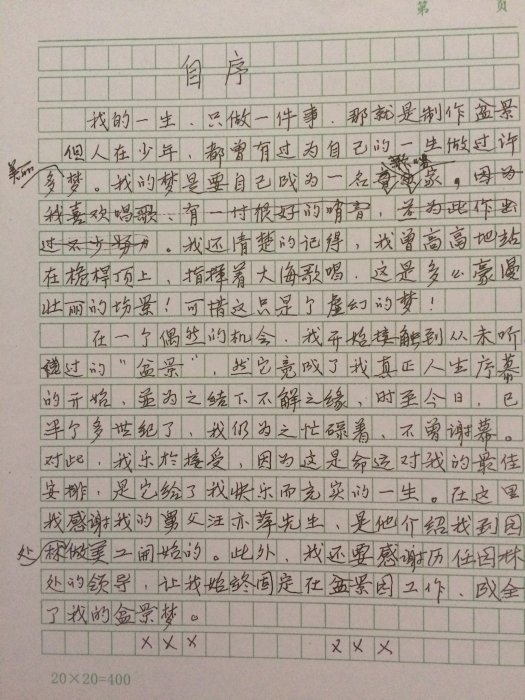 第 页
自序
我的一生，只做一件事，那就是制作盆景
但人在少年，都曾有过为自己的一生做过许
美丽
歌唱
多梦。我的梦是要自己成为一名家，因为
我喜欢唱歌、有一付很好的嗓音，若为此作出
过不少努力。我还清楚的记得，我曾高高地站
在桅杆顶上，指挥着大海歌唱，这是多么豪漫
壮丽的场景！可惜这只是个虚幻的梦！
在一个偶然的机会，我开始接触到从未听
过的“盆景”，然它竟成了我真正人生序幕
的开始，并为之结下不解之缘，时至今日，已
半个多世纪了，我仍为之忙碌着，不曾谢幕。
对此，我乐于接受，因为这是命运对我的最佳
安排，是它给了我快乐而充实的一生。在这里
我感谢我的舅父汪亦萍先生，是他介绍我到园
处林做美工开始的。此外，我还要感谢历任园林
处的领导，让我始终固定在盆景园工作，成全
了我的盆景梦。
××× ×××
20×20=400